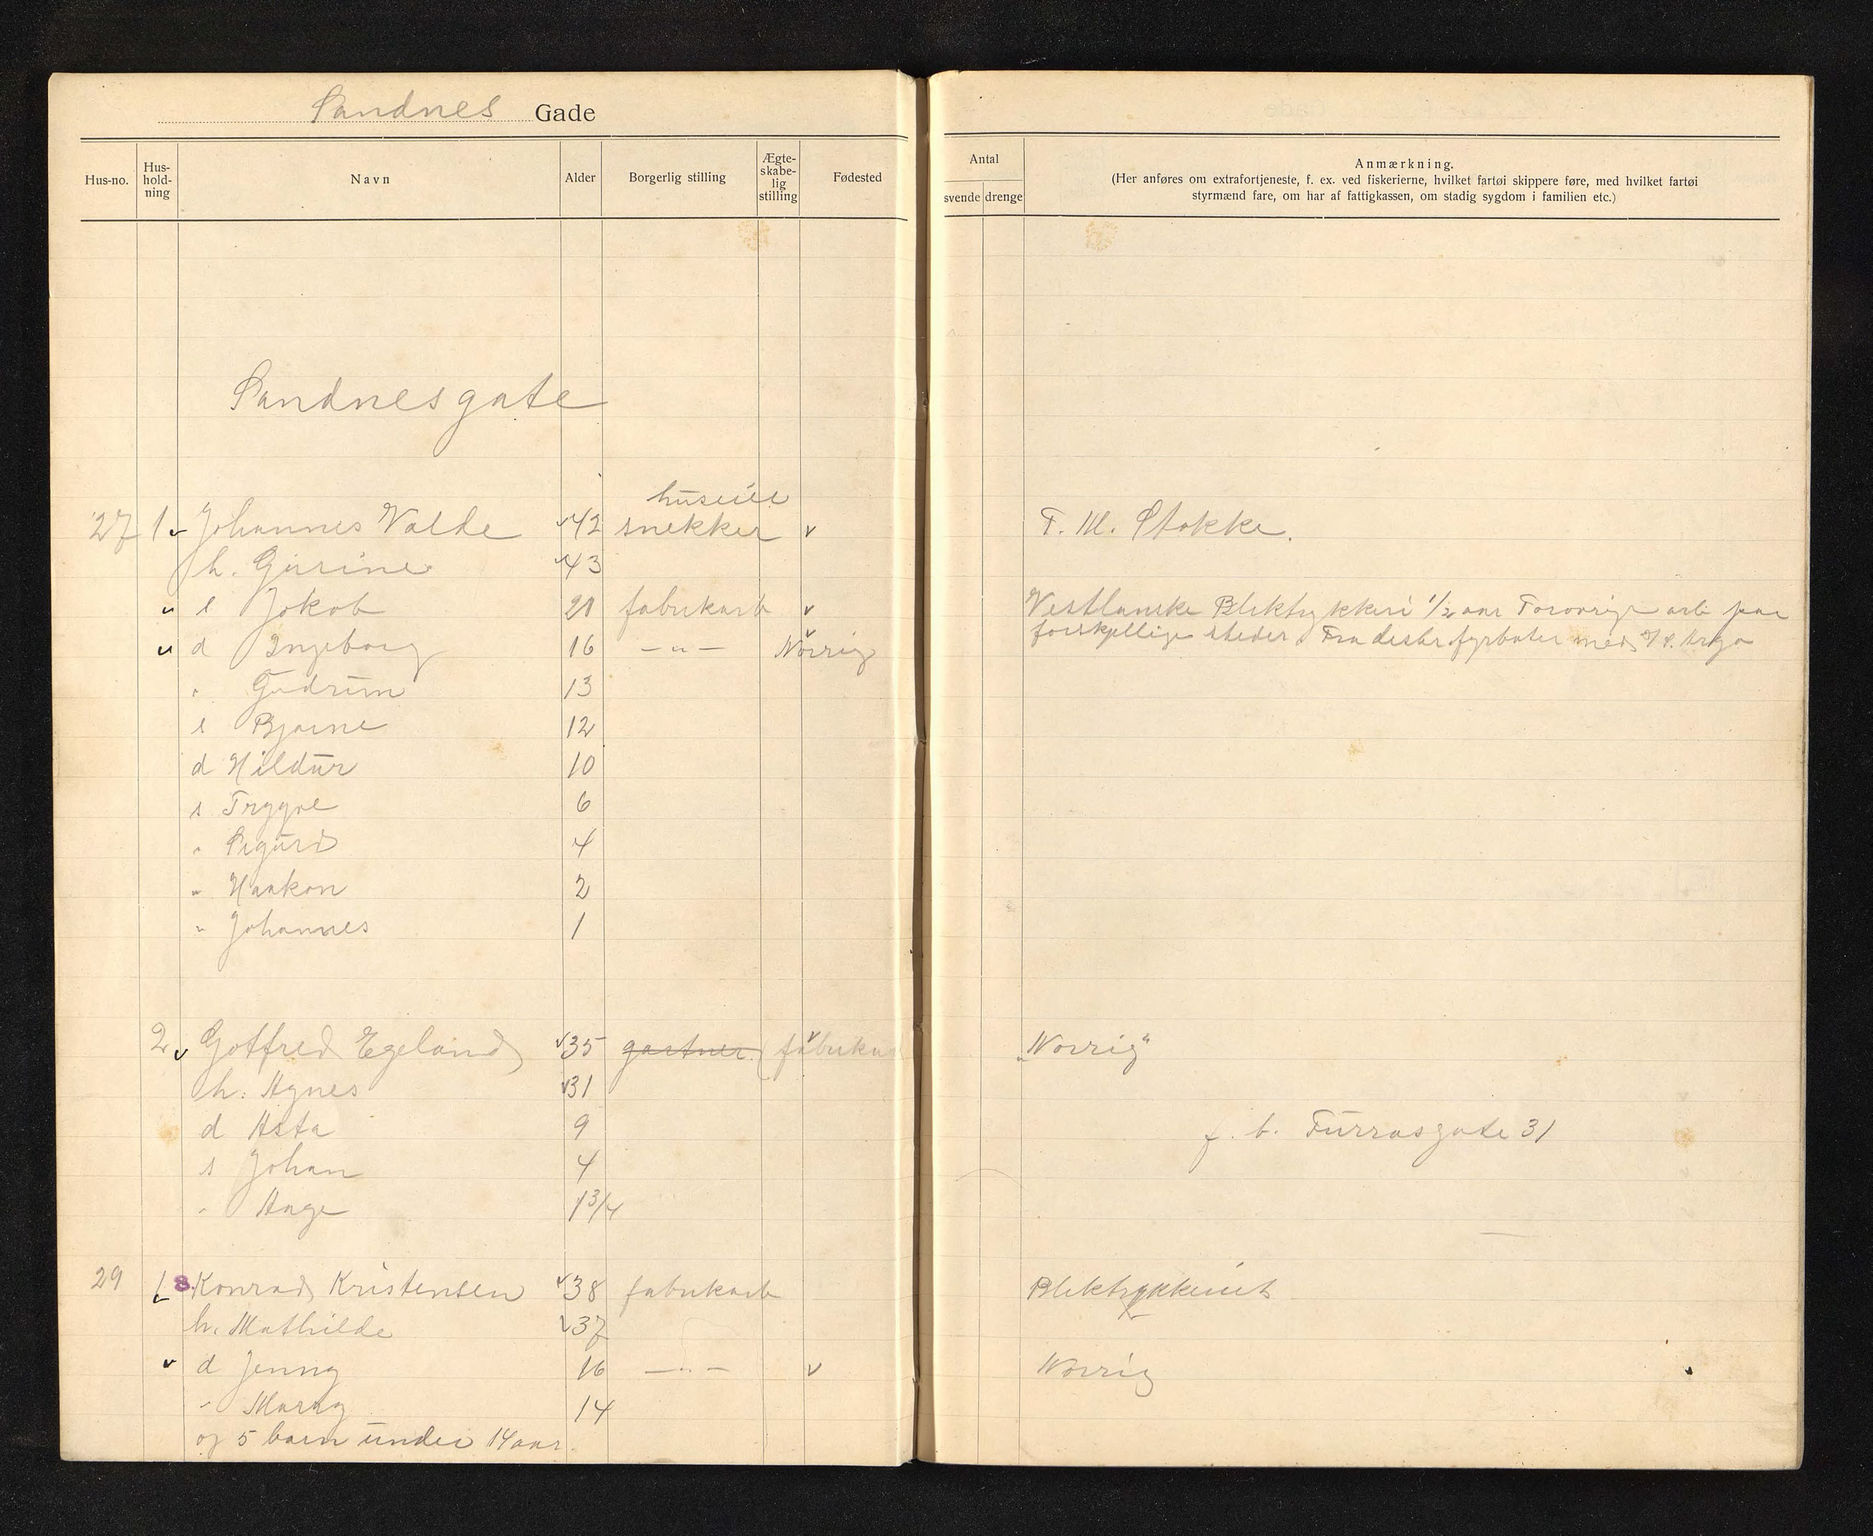 Sandnes Gade
Hus-no. Hus-hold-ning Navn Alder Borgerlig stilling Ægte-skabe-lig stilling Fødested
Antal
svende drenge
Anmærkning.
(Her anføres om extrafortjeneste, f. ex. ved fiskerierne, hvilket fartøi skippere føre, med hvilket fartøi
styrmænd fare, om har af fattigkassen, om stadig sygdom i familien etc.)
Sandnesgate
huseier
27 1 Johannes Valde 42 snekker F. M. Stokke.
h. Gurine 43
s Jakob 21 fabrikarb Vestlanske Bliktrykkeri 1/2 aar Forøvrig arb paa
forskjellige steder. Fra desbr fyrbøter med S/S. Argo
d Ingeborg 16 —"— Norrig
" Gudrun 13
s Bjarne 12
d Hildur 10
s Trygve 6
" Sigurd 4
" Haakon 2
" Johannes 1
2 Gotfred Egeland 35 gartner (fabrikar „Norrig“
h. Agnes 31
d Asta 9 f. b. Furrasgate 31
s Johan 4
" Aage 1 3/4
29 1 8. Konrad Kristensen 38 fabrikarb Bliktrykkeriet
h. Mathilde 37
d Jenny 16 —"— Norrig
" Marny 14
og 5 barn under 14 aar.